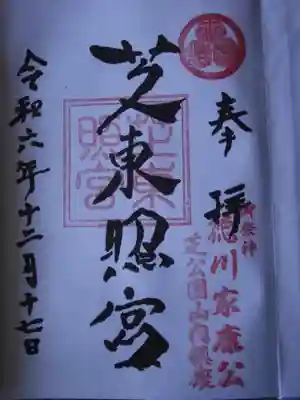 奉拝
御祭神
徳川家康公
芝公園山内鎮座
芝東照宮
芝東照宮
令和六年十二月十七日